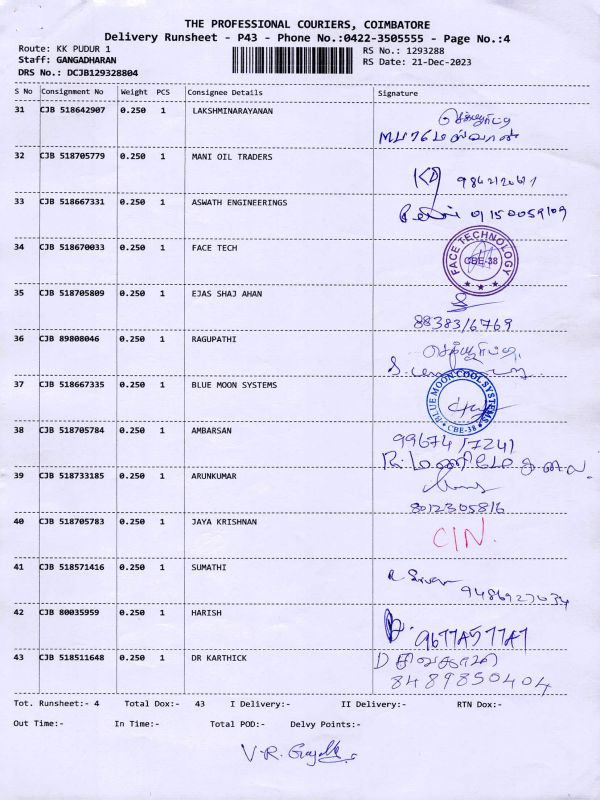 THE PROFESSIONAL COURIERS, COIMBATORE
Delivery Runsheet - P43 - Phone No.:0422-3505555 - Page No.:4
Route: KK PUDUR 1
RS No.: 1293288
Staff: GANGADHARAN
RS Date: 21-Dec-2023
DRS No.: DCJB129328804
S No Consignment No Weight PCS Consignee Details Signature
31 CJB 518642907 0.250 1 LAKSHMINARAYANAN
32 CJB 518705779 0.250 1 MANI OIL TRADERS
33 CJB 518667331 0.250 1 ASWATH ENGINEERINGS
34 CJB 518670033 0.250 1 FACE TECH
FACE TECHNOLOGY
CBE-38
35 CJB 518705809 0.250 1 EJAS SHAJ AHAN
88383/6769
36 CJB 89808046 0.250 1 RAGUPATHI
37 CJB 518667335 0.250 1 BLUE MOON SYSTEMS
BLUE MOON COOL SYSTEMS
CBE-38
38 CJB 518705784 0.250 1 AMBARSAN
99674/7241
39 CJB 518733185 0.250 1 ARUNKUMAR
8012305816
40 CJB 518705783 0.250 1 JAYA KRISHNAN
CIN.
41 CJB 518571416 0.250 1 SUMATHI
9486927034
42 CJB 80035959 0.250 1 HARISH
9677A577A7
43 CJB 518511648 0.250 1 DR KARTHICK
8489850404
Tot. Runsheet:- 4 Total Dox:- 43 I Delivery:- II Delivery:- RTN Dox:-
Out Time:- In Time:- Total POD:- Delvy Points:-